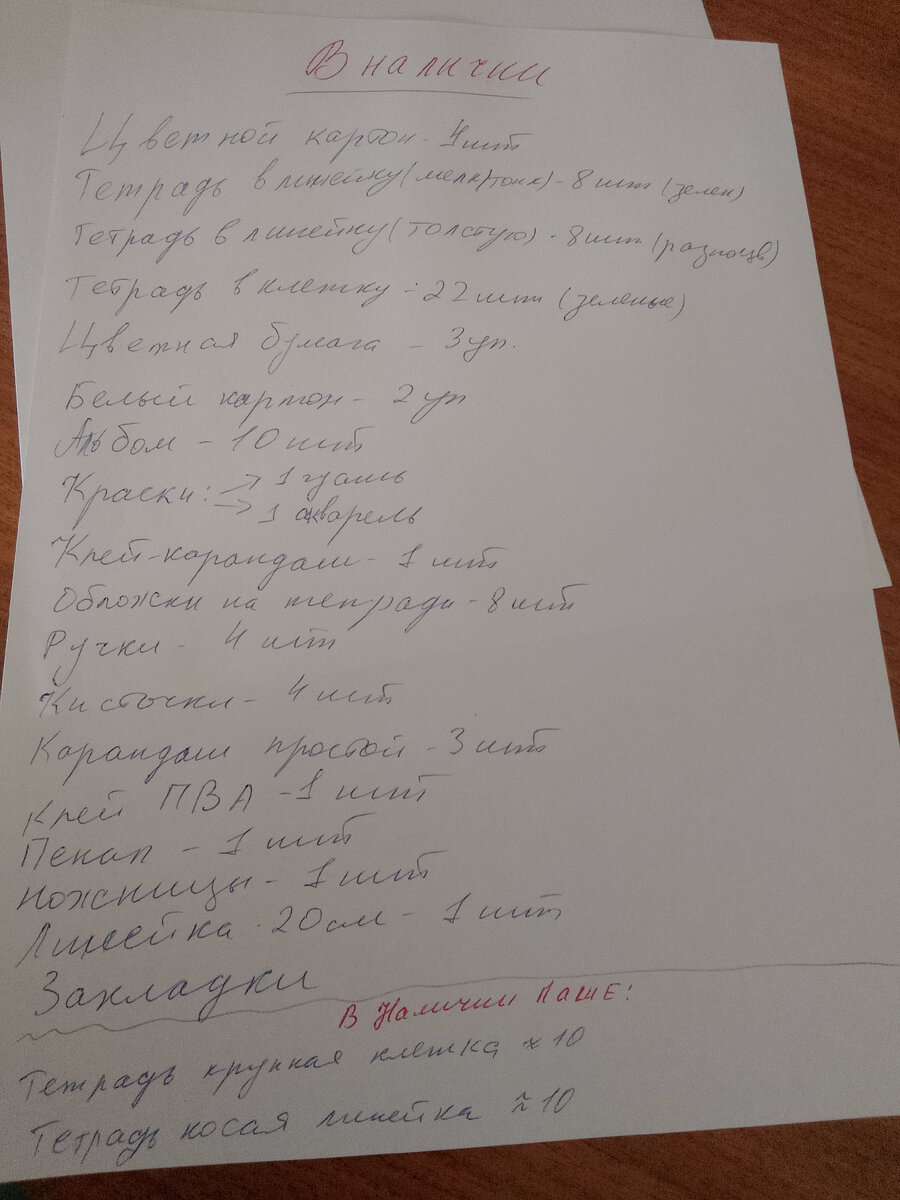 В наличии
Цветной картон - 4 шт
Тетрадь в линейку (мелк/тонк) - 8 шт (зелен)
Тетрадь в линейку (толстую) - 8 шт (разноцв)
Тетрадь в клетку - 22 шт (зеленые)
Цветная бумага - 3 уп.
Белый картон - 2 уп
Альбом - 10 шт
Краски: → 1 гуашь
→ 1 акварель
Клей-карандаш - 1 шт
Обложки на тетради - 8 шт
Ручки - 4 шт
Кисточки - 4 шт
Карандаш простой - 3 шт
Клей ПВА - 1 шт
Пенал - 1 шт
Ножницы - 1 шт
Линейка 20 см - 1 шт
Закладки
В Наличии Паше!
Тетрадь крупная клетка ≈ 10
Тетрадь косая линейка ≈ 10